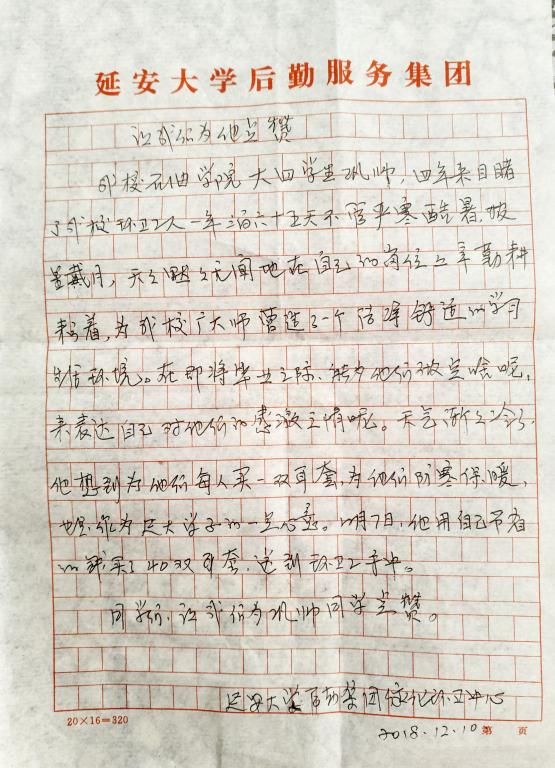 延安大学后勤服务集团
让我们为他点赞
我校石油学院大四学生巩帅，四年来目睹
了我校环卫工人一年三百六十五天不管严寒酷暑，披
星戴月，天天默默无闻地在自己的岗位上辛勤耕
耘着，为我校广大师营造了一个洁净舒适的学习
生活环境。在即将毕业之际，能为他们做点啥呢，
来表达自己对他们的感激之情呢。天气渐渐冷了，
他想到为他们每人买一双耳套，为他们防寒保暖，
也是作为延大学子的一点心意。12月7日，他用自己节省
的钱买了40双耳套，送到环卫工手中。
同学们，让我们为巩帅同学点赞。
延安大学后勤集团绿化环卫中心
20×16=320
2018.12.10 第 页